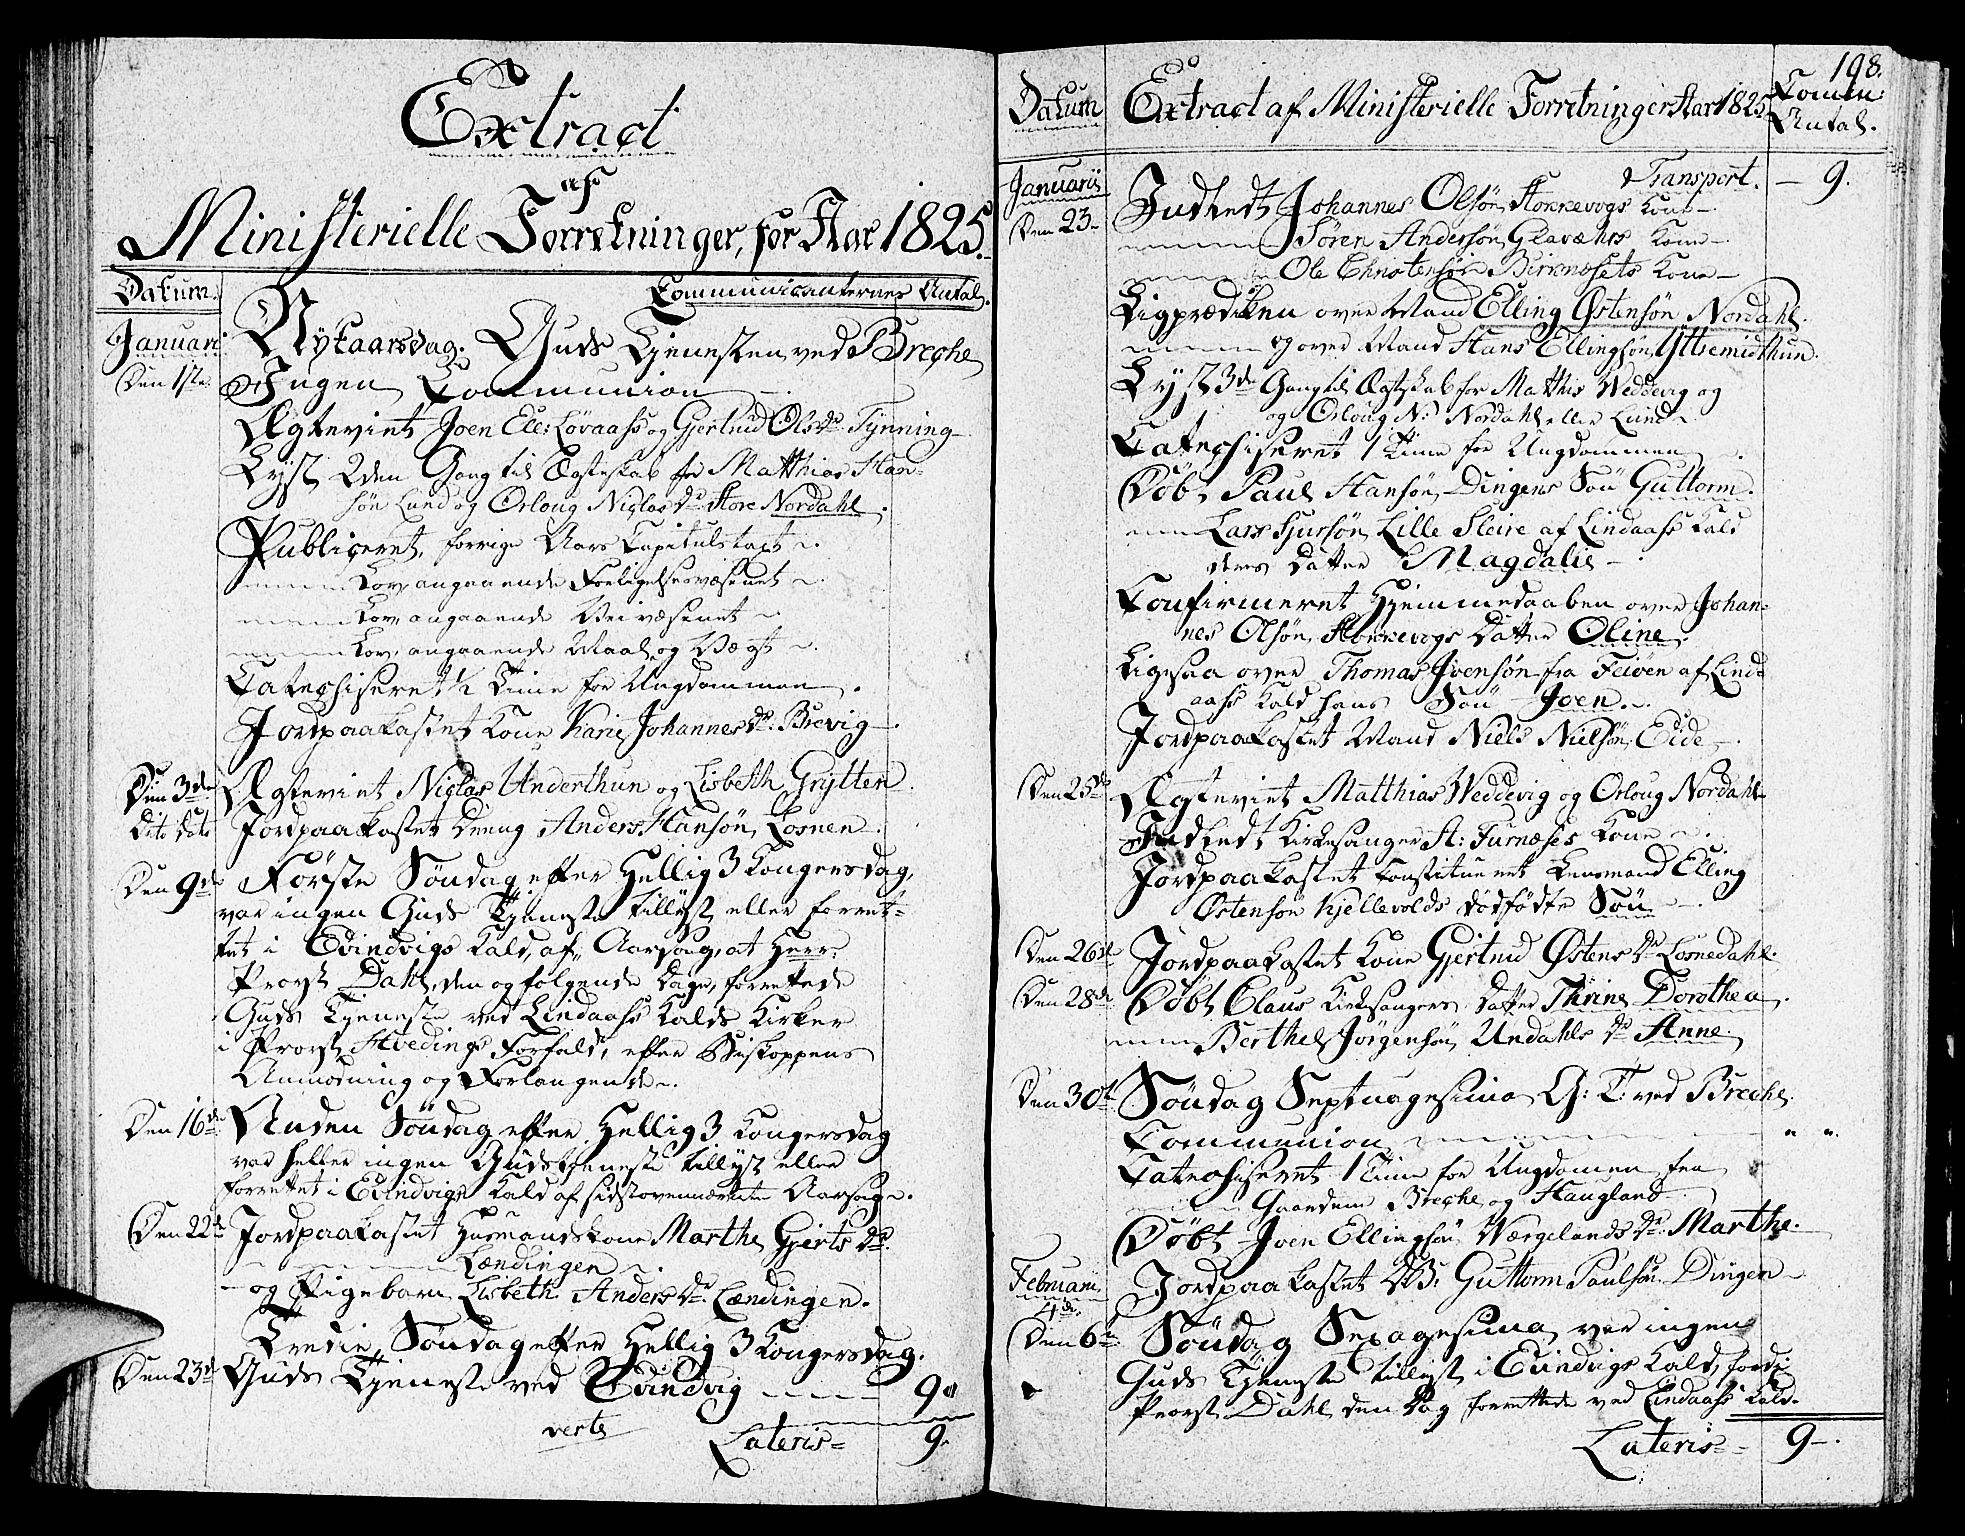 Extract
af
Ministerielle Forretninger, for Aar 1825.
Datum. Communicanternes Antal.
Januari Nytaarsdag. Guds Tjenesten ved Breche
Den 1ste Ingen Communion
Ægteviet Joen Ell: Løvaass og Gjertrud Olsdr. Tynning
Lyst 2den Gang til Ægteskab for Matthias Han-
søn Lund og Orloug Niglasdr. Store Nordahl.
Publiceret, forrige Aars Capitulstaxt
Lov, angaaende Forligelsesvæsenet
Lov, angaaende Veivæsenet
Lov, angaaende Maal og Vægt
Catechiseret 1/2 Time for Ungdommen.
Jordpaakastet Kone Kari Johannesdr. Brevig
Den 3de Ægteviet Niglas Underthun og Lisbeth Grytten
Dito Dito Jordpaakastet Dreng Anders Hansøn, Losnen.
Den 9de Første Søndag efter Hellig 3 Kongersdag,
var ingen Guds Tjeneste tillyst eller forret-
tet i Evindvigs Kald, af Aarsag, at Herr
Provst Dahl, den og følgende Dage, forrettede
Guds Tjeneste ved Lindaass Kalds Kirker
i Provst Hvedings Forfald, efter Biskoppens
Anmodning og Forlangende.
Den 16de Anden Søndag efter Hellig 3 Kongersdag
var heller ingen Gudstjeneste tillyst eller
forrettet i Evindvigs Kald af sidstovennævnte Aarsag.
Den 22de Jordpaakastet Husmandskone Marthe Gjertsdr.
Lændingen
og Pigebarn Lisbeth Andersdr. Lændingen.
Tredie Søndag efter Hellig 3 Kongersdag.
Den 23de Guds Tjeneste ved Evindvig 9
verte Lateris 9.
198.
Datum Extract af Ministerielle Forretninger Aar 1825 Comm: Antal.
Transport. 9.
Januarii Indledt Johannes Olsøn Storrevogs Kone
Den 23 Søren Andersøn Glavæhrs Kone
Ole Christensøn Birknesets Kone
Ligprædiken over Mand Elling Østensøn Nordahl.
og over Mand Hans Ellingsøn Yttremidthun.
Lyst 3de Gang til Ægteskab for Matthis Weddevig og
og Orloug N: Nordahl eller Lund
Catechiseret 1 Time for Ungdommen
Døbt Paul Hansøn Dingens Søn Guttorm.
Lars Sjursøn Lille Sleire af Lindaass Kald
deres Datter Magdalis
Confirmeret Hjemmedaaben over Johan-
nes Olsøn Storrevogs Datter Oline.
Ligesaa over Thomas Joensøn fra Feiven af Lind-
aass Kald hans Søn Joen.
Jordpaakastet Mand Niels Nielsøn Eide
Den 25de Ægteviet Matthias Weddevig og Orloug Nordahl
Indledt Kirkesanger A: Furnæses Kone
Jordpaakastet Constitueret Lensmand Elling
Østensøn Kjellevolds dødfødte Søn
Den 26de Jordpaakastet Kone Gjertrud Østensdr. Losnedahl.
Den 28de Døbt Claus Kirkesangers Datter Thrine Dorothea
Berthel Jørgensøn Undahls dr. Anne.
Den 30te Søndag Septuagesima G: T: ved Breche.
Communion
Catechiseret 1 Time for Ungdommen fra
Gaardene Breche og Haugland
Døbt Joen Ellingsøn Wergelands dr. Marthe.
Februarii 4de Jordpaakastet DB: Guttorm Paulsøn Dingen
Den 6te Søndag Sexagesima var ingen
Guds Tjeneste tillyst i Evindvigs Kald, fordi
Provst Dahl den Dag forrettede ved Lindaass Kald.
Lateris 9.